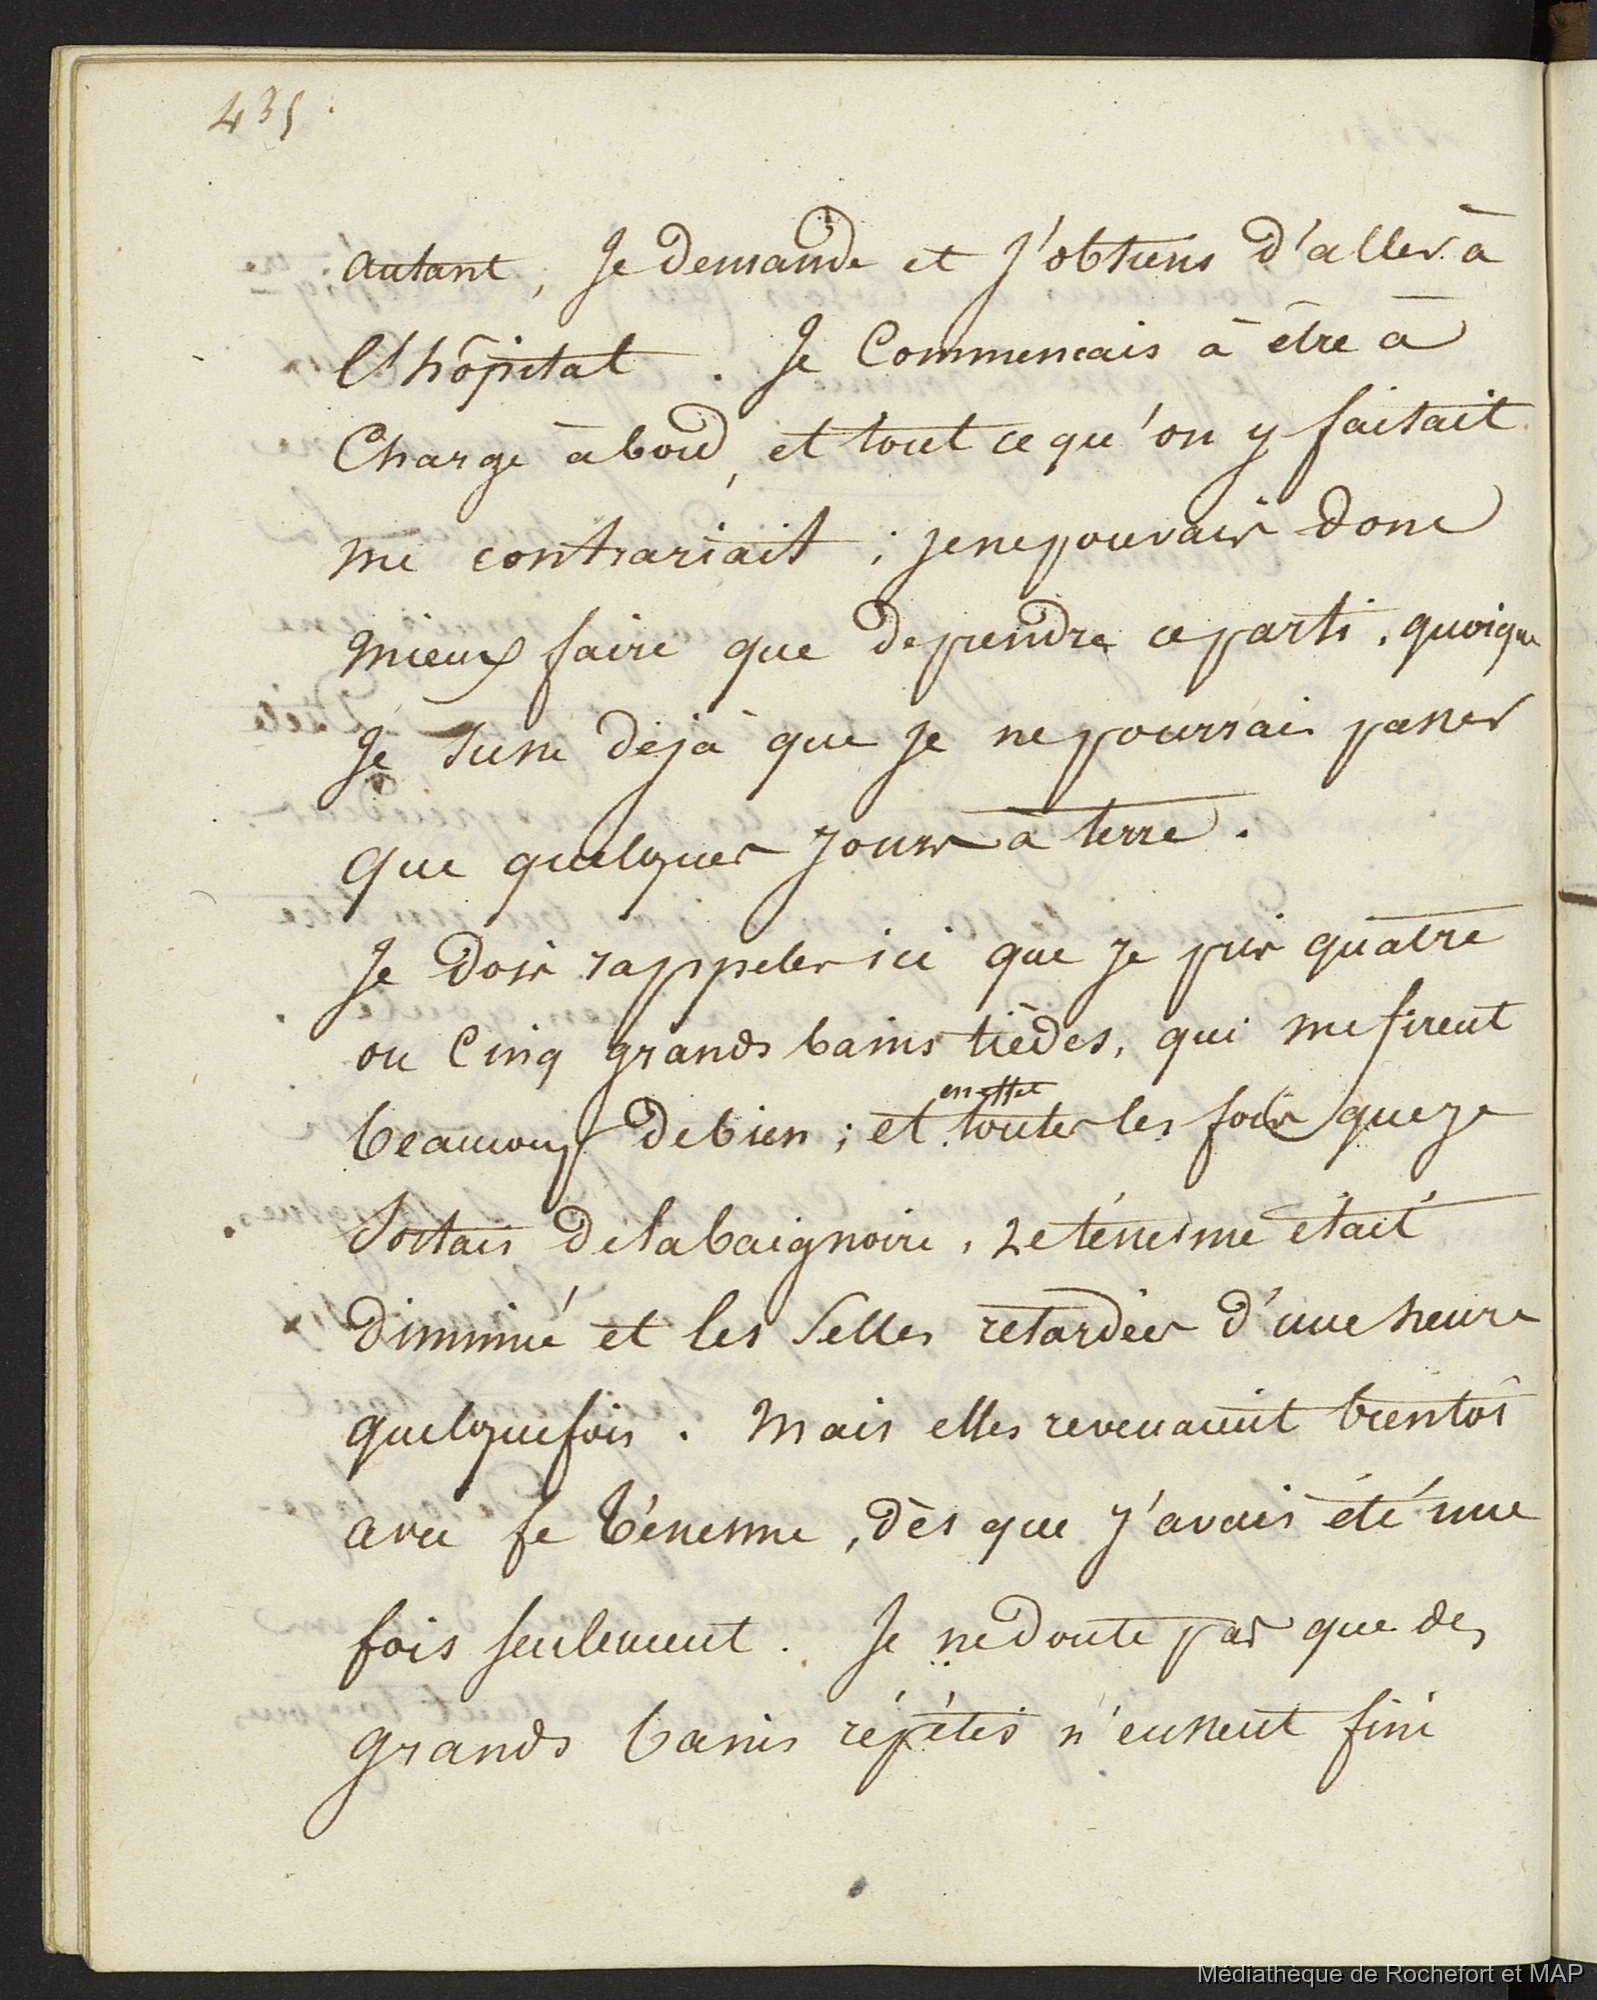 435.
autant, Je demande et J'obtiens d'aller à
l'hôpital. Je Commencais à être à
Charge à bord, et tout ce qu'on y faisait
me contrariait ; je ne pouvais donc
mieux faire que de prendre ce parti, quoique
Je susse déjà que Je ne pourrais passer
que quelques Jours à terre.
Je dois rappeler ici que Je pris quatre
ou Cinq grands bains tièdes, qui me firent
en effet
beaucoup de bien ; et toutes les fois que je
Sortais de la baignoire, Le ténesme était
diminué et les Selles retardées d'une heure
quelquefois. Mais elles revenaient bientôt
avec le ténesme, dès que J'avais été une
fois seulement. Je ne doute pas que des
grands bains répétés n'eussent fini
Médiathèque de Rochefort et MAP